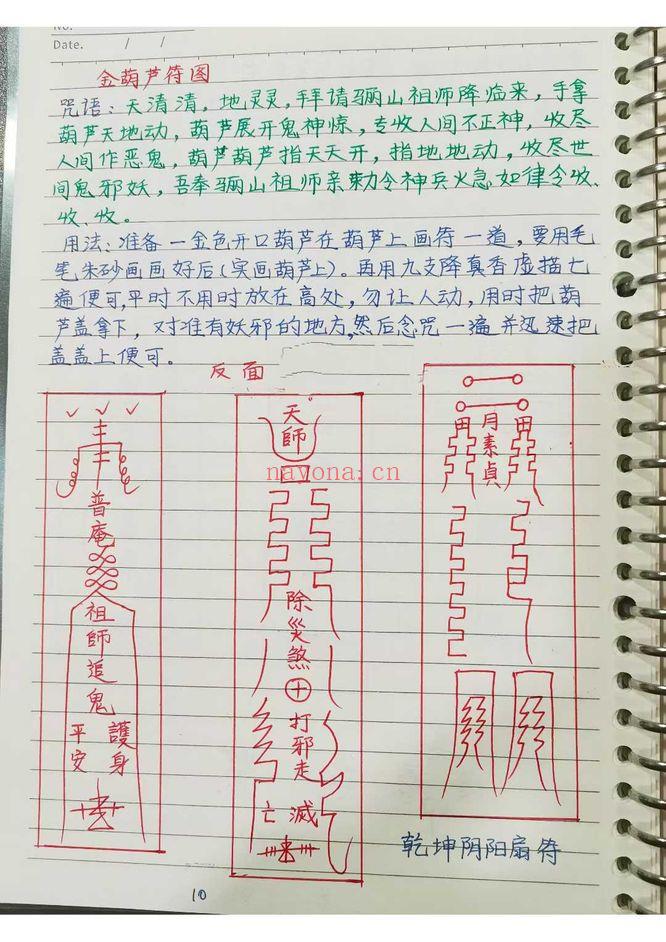 No.
Date. / /
金葫芦符图
咒语：天清清，地灵灵，拜请骊山祖师降临来，手拿
葫芦天地动，葫芦展开鬼神惊，专收人间不正神，收尽
人间作恶鬼，葫芦葫芦指天天开，指地地动，收尽世
间鬼邪妖，吾奉骊山祖师亲勅令神兵火急如律令收、
收、收。
用法：准备一金色开口葫芦在葫芦上画符一道，要用毛
笔朱砂画画好后(实画葫芦上)。再用九支降真香虚描七
遍便可，平时不用时放在高处，勿让人动，用时把葫
芦盖拿下，对准有妖邪的地方，然后念咒一遍并迅速把
盖盖上便可。
反面
普庵
祖師追鬼
平安
護身
天師
除災煞
打邪走
亡滅
月素貞
乾坤阴阳扇符
nayona.cn
10